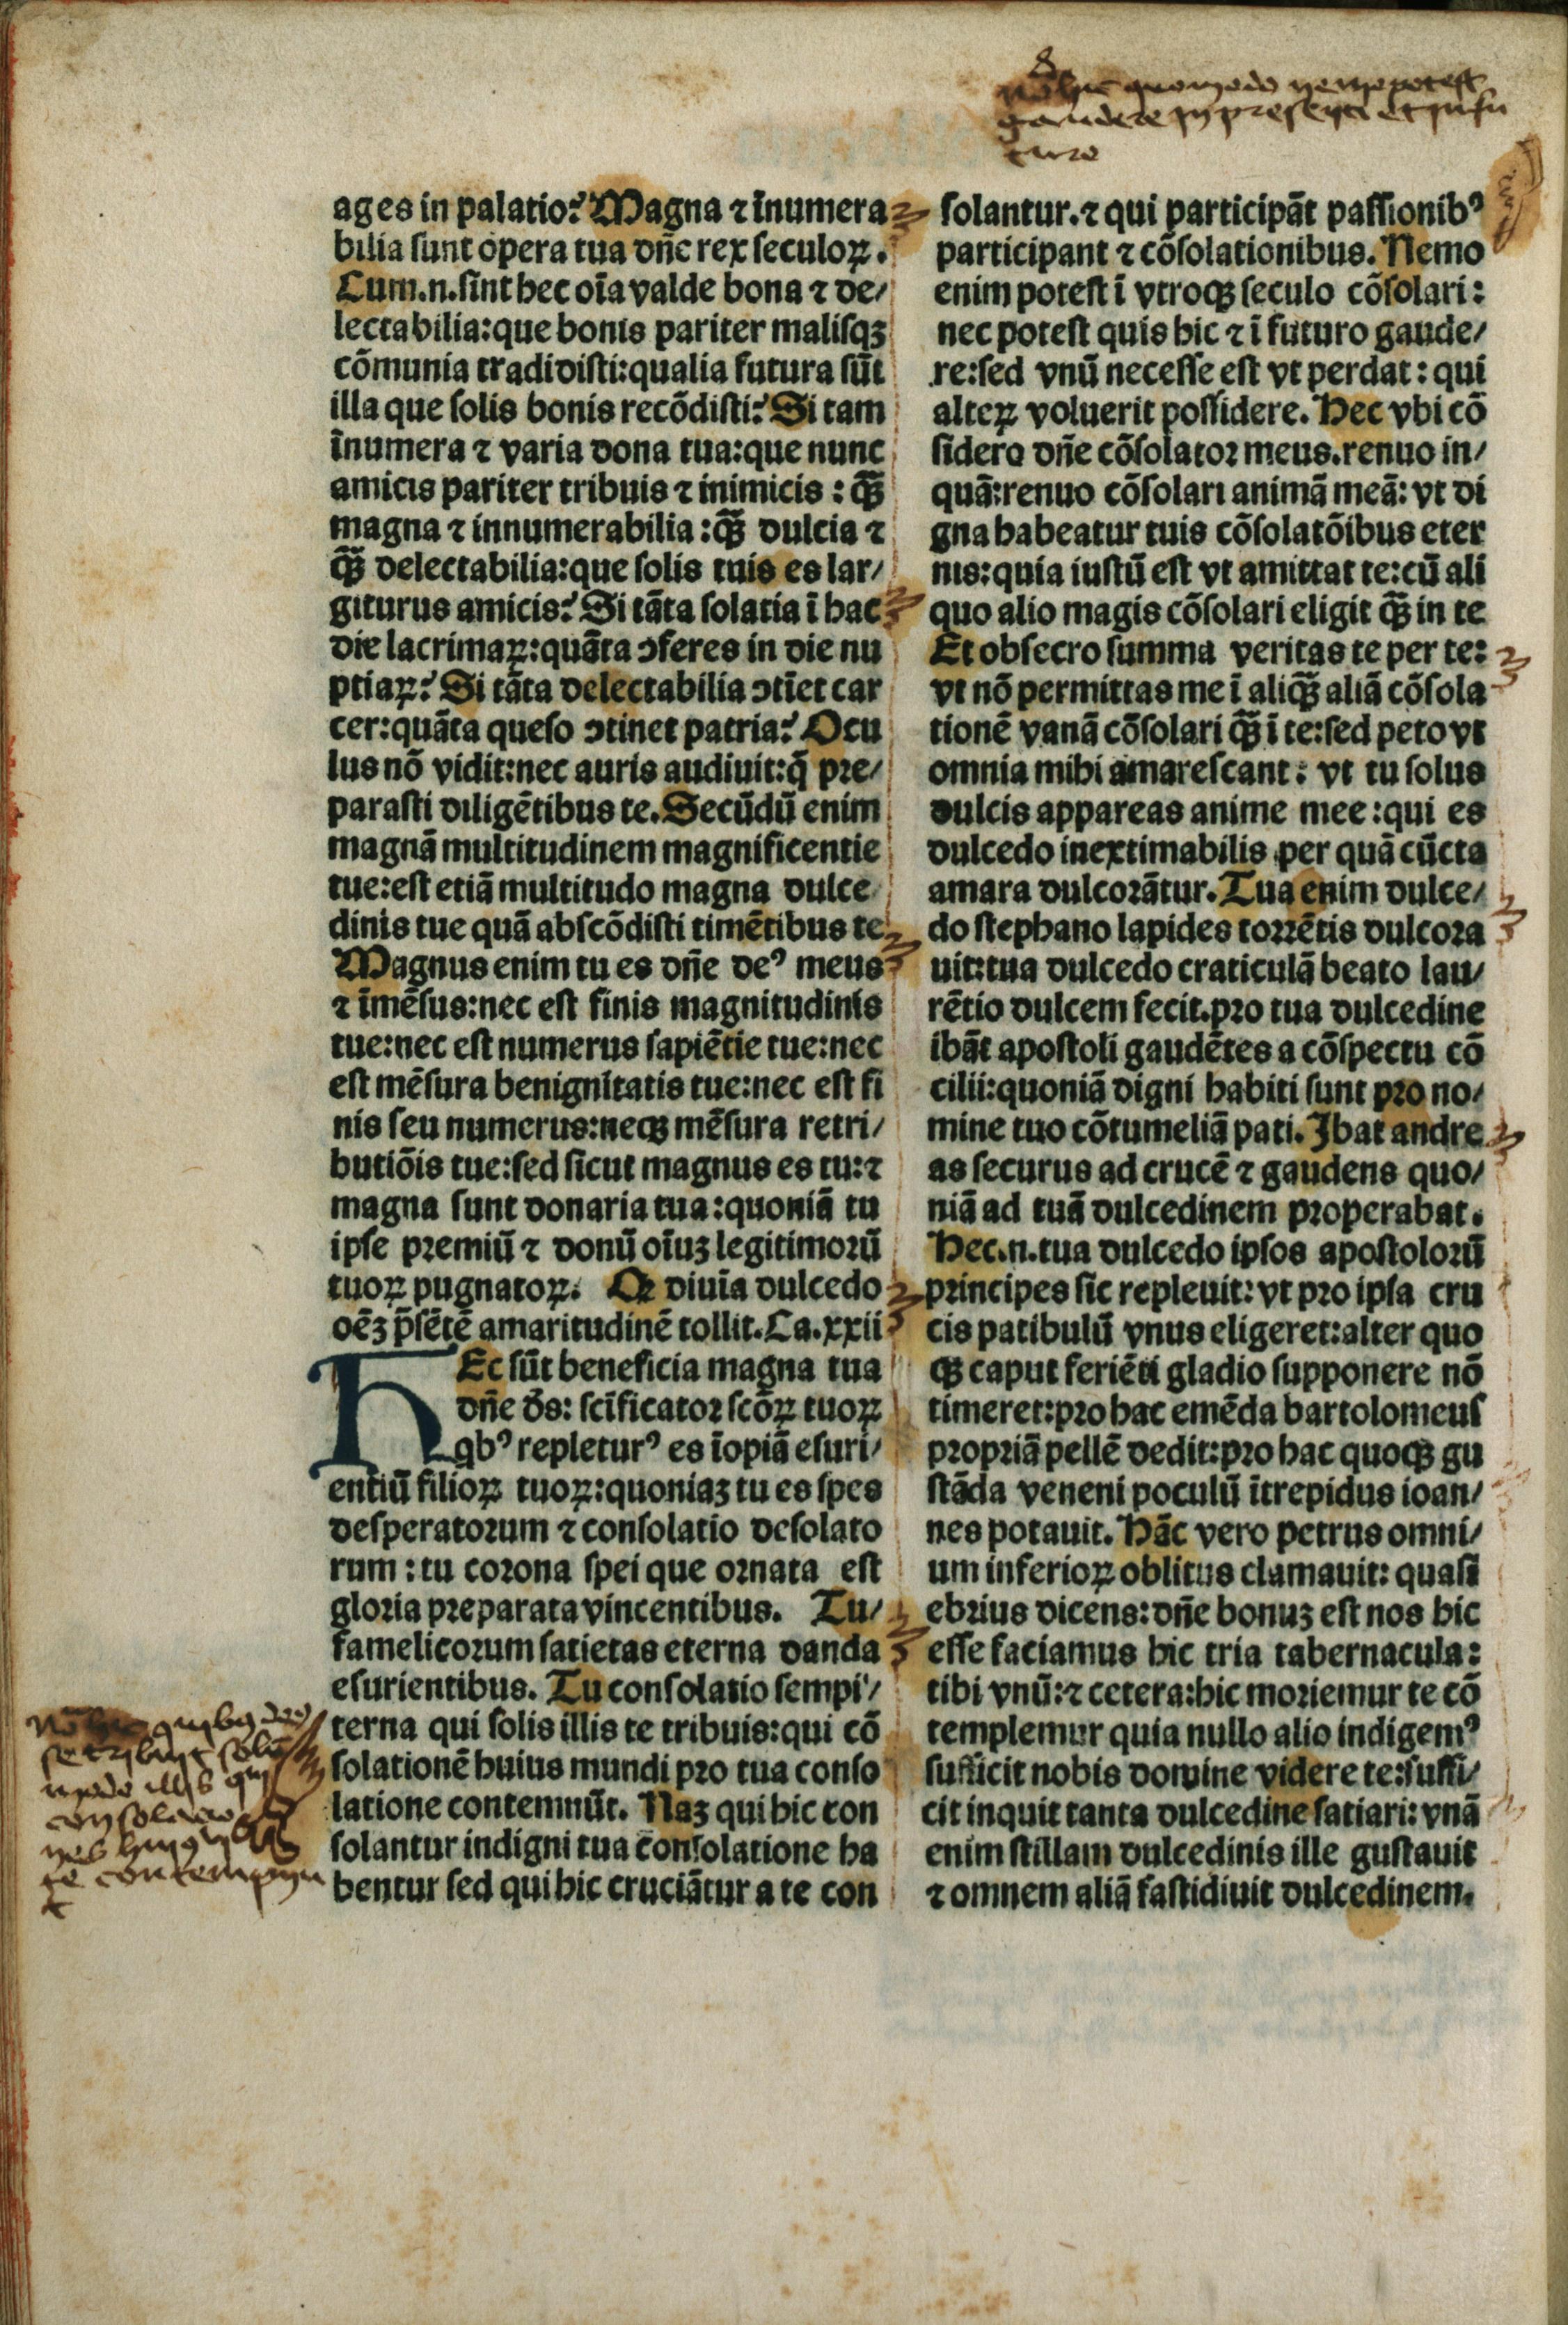 nō hic quomodo nemo potest
gaudere in presenti et in fu
turo
ages in palatio? Magna ⁊ īnumera
bilia sunt opera tua dn̄e rex seculoꝝ.
Cum.n.sint hec oīa valde bona ⁊ de/
lectabilia:que bonis pariter malisqꝫ
cōmunia tradidisti:qualia futura sūt
illa que solis bonis recōdisti? Si tam
īnumera ⁊ varia dona tua:que nunc
amicis pariter tribuis ⁊ inimicis : qꝫ̄
magna ⁊ innumerabilia :qꝫ̄ dulcia ⁊
qꝫ̄ delectabilia:que solis tuis es lar/
giturus amicis? Si tāta solatia ī hac
die lacrimaꝝ:quāta ↄferes in die nu
ptiaꝝ? Si tāta delectabilia ↄtīet car
cer:quāta queso ↄtinet patria? Ocu
lus nō vidit:nec auris audiuit:q̄ pre/
parasti diligētibus te. Secūdū enim
magnā multitudinem magnificentie
tue:est etiā multitudo magna dulce
dinis tue quā abscōdisti timētibus te
Magnus enim tu es dn̄e deꝰ meus
⁊ īmēsus:nec est finis magnitudinis
tue:nec est numerus sapiētie tue:nec
est mēsura benignitatis tue:nec est fi
nis seu numerus:neqꝫ mēsura retri/
butiōis tue:sed sicut magnus es tu:⁊
magna sunt donaria tua:quoniā tu
ipse premiū ⁊ donū oīuꝫ legitimorū
tuoꝝ pugnatoꝝ. Qꝛ diuīa dulcedo
oēꝫ p̄sētē amaritudinē tollit. Ca.xxii
HEc sūt beneficia magna tua
dn̄e ds̄: scīficator scōꝝ tuoꝝ
qbꝰ repleturꝰ es īopiā esuri/
entiū filioꝝ tuoꝝ:quoniaꝫ tu es spes
desperatorum ⁊ consolatio desolato
rum : tu corona spei que ornata est
gloria preparata vincentibus. Tu/
famelicorum satietas eterna danda
esurientibus. Tu consolatio sempi/
terna qui solis illis te tribuis:qui cō
solationē huius mundi pro tua conso
latione contemnūt. Naꝫ qui hic con
solantur indigni tua consolatione ha
bentur sed qui hic cruciātur a te con
nō hic quibus deus
se tribuit solū
modo illis qui
consolacio
nes huius
te contempnu
t
solantur.⁊ qui participāt passionibꝰ
participant ⁊ cōsolationibus. Nemo
enim potest ī vtroqꝫ seculo cōsolari:
nec potest quis hic ⁊ ī futuro gaude/
re:sed vnū necesse est vt perdat : qui
alteꝝ voluerit possidere. Hec vbi cō
sidero dn̄e cōsolator meus.renuo in/
quā:renuo cōsolari animā meā: vt di
gna habeatur tuis cōsolatōibus eter
nis:quia iustū est vt amittat te:cū ali
quo alio magis cōsolari eligit qꝫ̄ in te
Et obsecro summa veritas te per te:
vt nō permittas me ī aliqꝫ̄ aliā cōsola
tionē vanā cōsolari qꝫ̄ ī te:sed peto vt
omnia mihi amarescant : vt tu solus
dulcis appareas anime mee :qui es
dulcedo inextimabilis per quā cūcta
amara dulcorātur. Tua enim dulce/
do stephano lapides torrētis dulcora
uit:tua dulcedo craticulā beato lau/
rētio dulcem fecit.pro tua dulcedine
ibāt apostoli gaudētes a cōspectu cō
cilii:quoniā digni habiti sunt pro no/
mine tuo cōtumeliā pati. Ibat andre
as securus ad crucē ⁊ gaudens quo/
niā ad tuā dulcedinem properabat.
Hec.n.tua dulcedo ipsos apostolorū
principes sic repleuit: vt pro ipsa cru
cis patibulū vnus eligeret:alter quo
qꝫ caput feriēti gladio supponere nō
timeret:pro hac emēda bartolomeus
propriā pellē dedit:pro hac quoqꝫ gu
stāda veneni poculū ītrepidus ioan/
nes potauit. Hāc vero petrus omni/
um inferioꝝ oblitus clamauit: quasi
ebrius dicens:dn̄e bonuꝫ est nos hic
esse faciamus hic tria tabernacula:
tibi vnū:⁊ cetera:hic moriemur te cō
templemur quia nullo alio indigemꝰ
sufficit nobis domine videre te:suffi/
cit inquit tanta dulcedine satiari: vnā
enim stillam dulcedinis ille gustauit
⁊ omnem aliā fastidiuit dulcedinem.